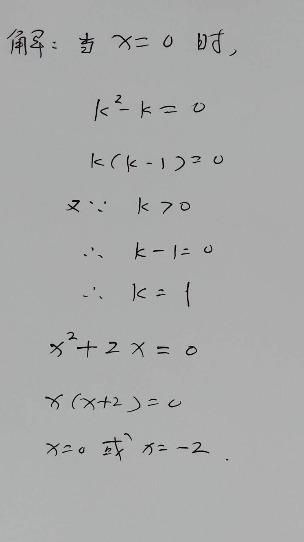 解：当 x = 0 时，
k² - k = 0
k(k-1)=0
又∵ k>0
∴ k-1=0
∴ k=1
x²+2x=0
x(x+2)=0
x=0 或 x=-2.